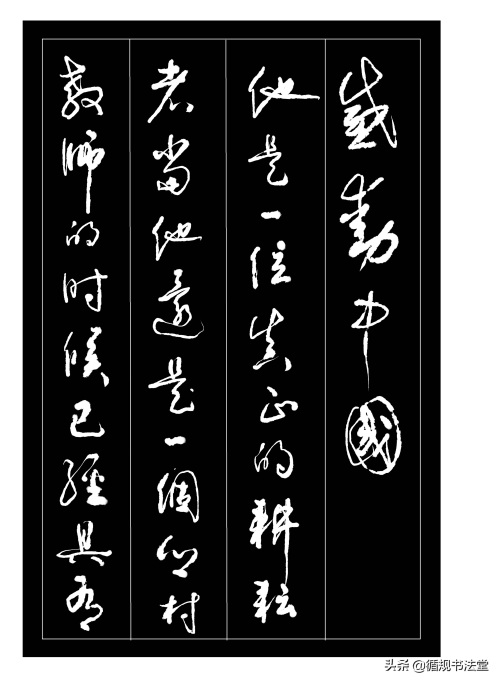 感動中國
他是一位真正的耕耘
者當他還是一個鄉村
教師的时候已經具有
头条 @循规书法堂